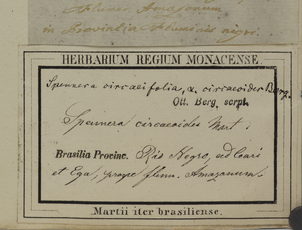 Flumen Amazonum
in Provincia Fluminis nigri.
HERBARIUM REGIUM MONACENSE.
Spennera circaeifolia, α, circaeoides Berg.
Ott. Berg, scrpt.
Spennera circaeoides Mart.
Brasilia Provinc. Rio Negro, ad Coari
et Ega, prope flum. Amazonum.
Martii iter brasiliense.